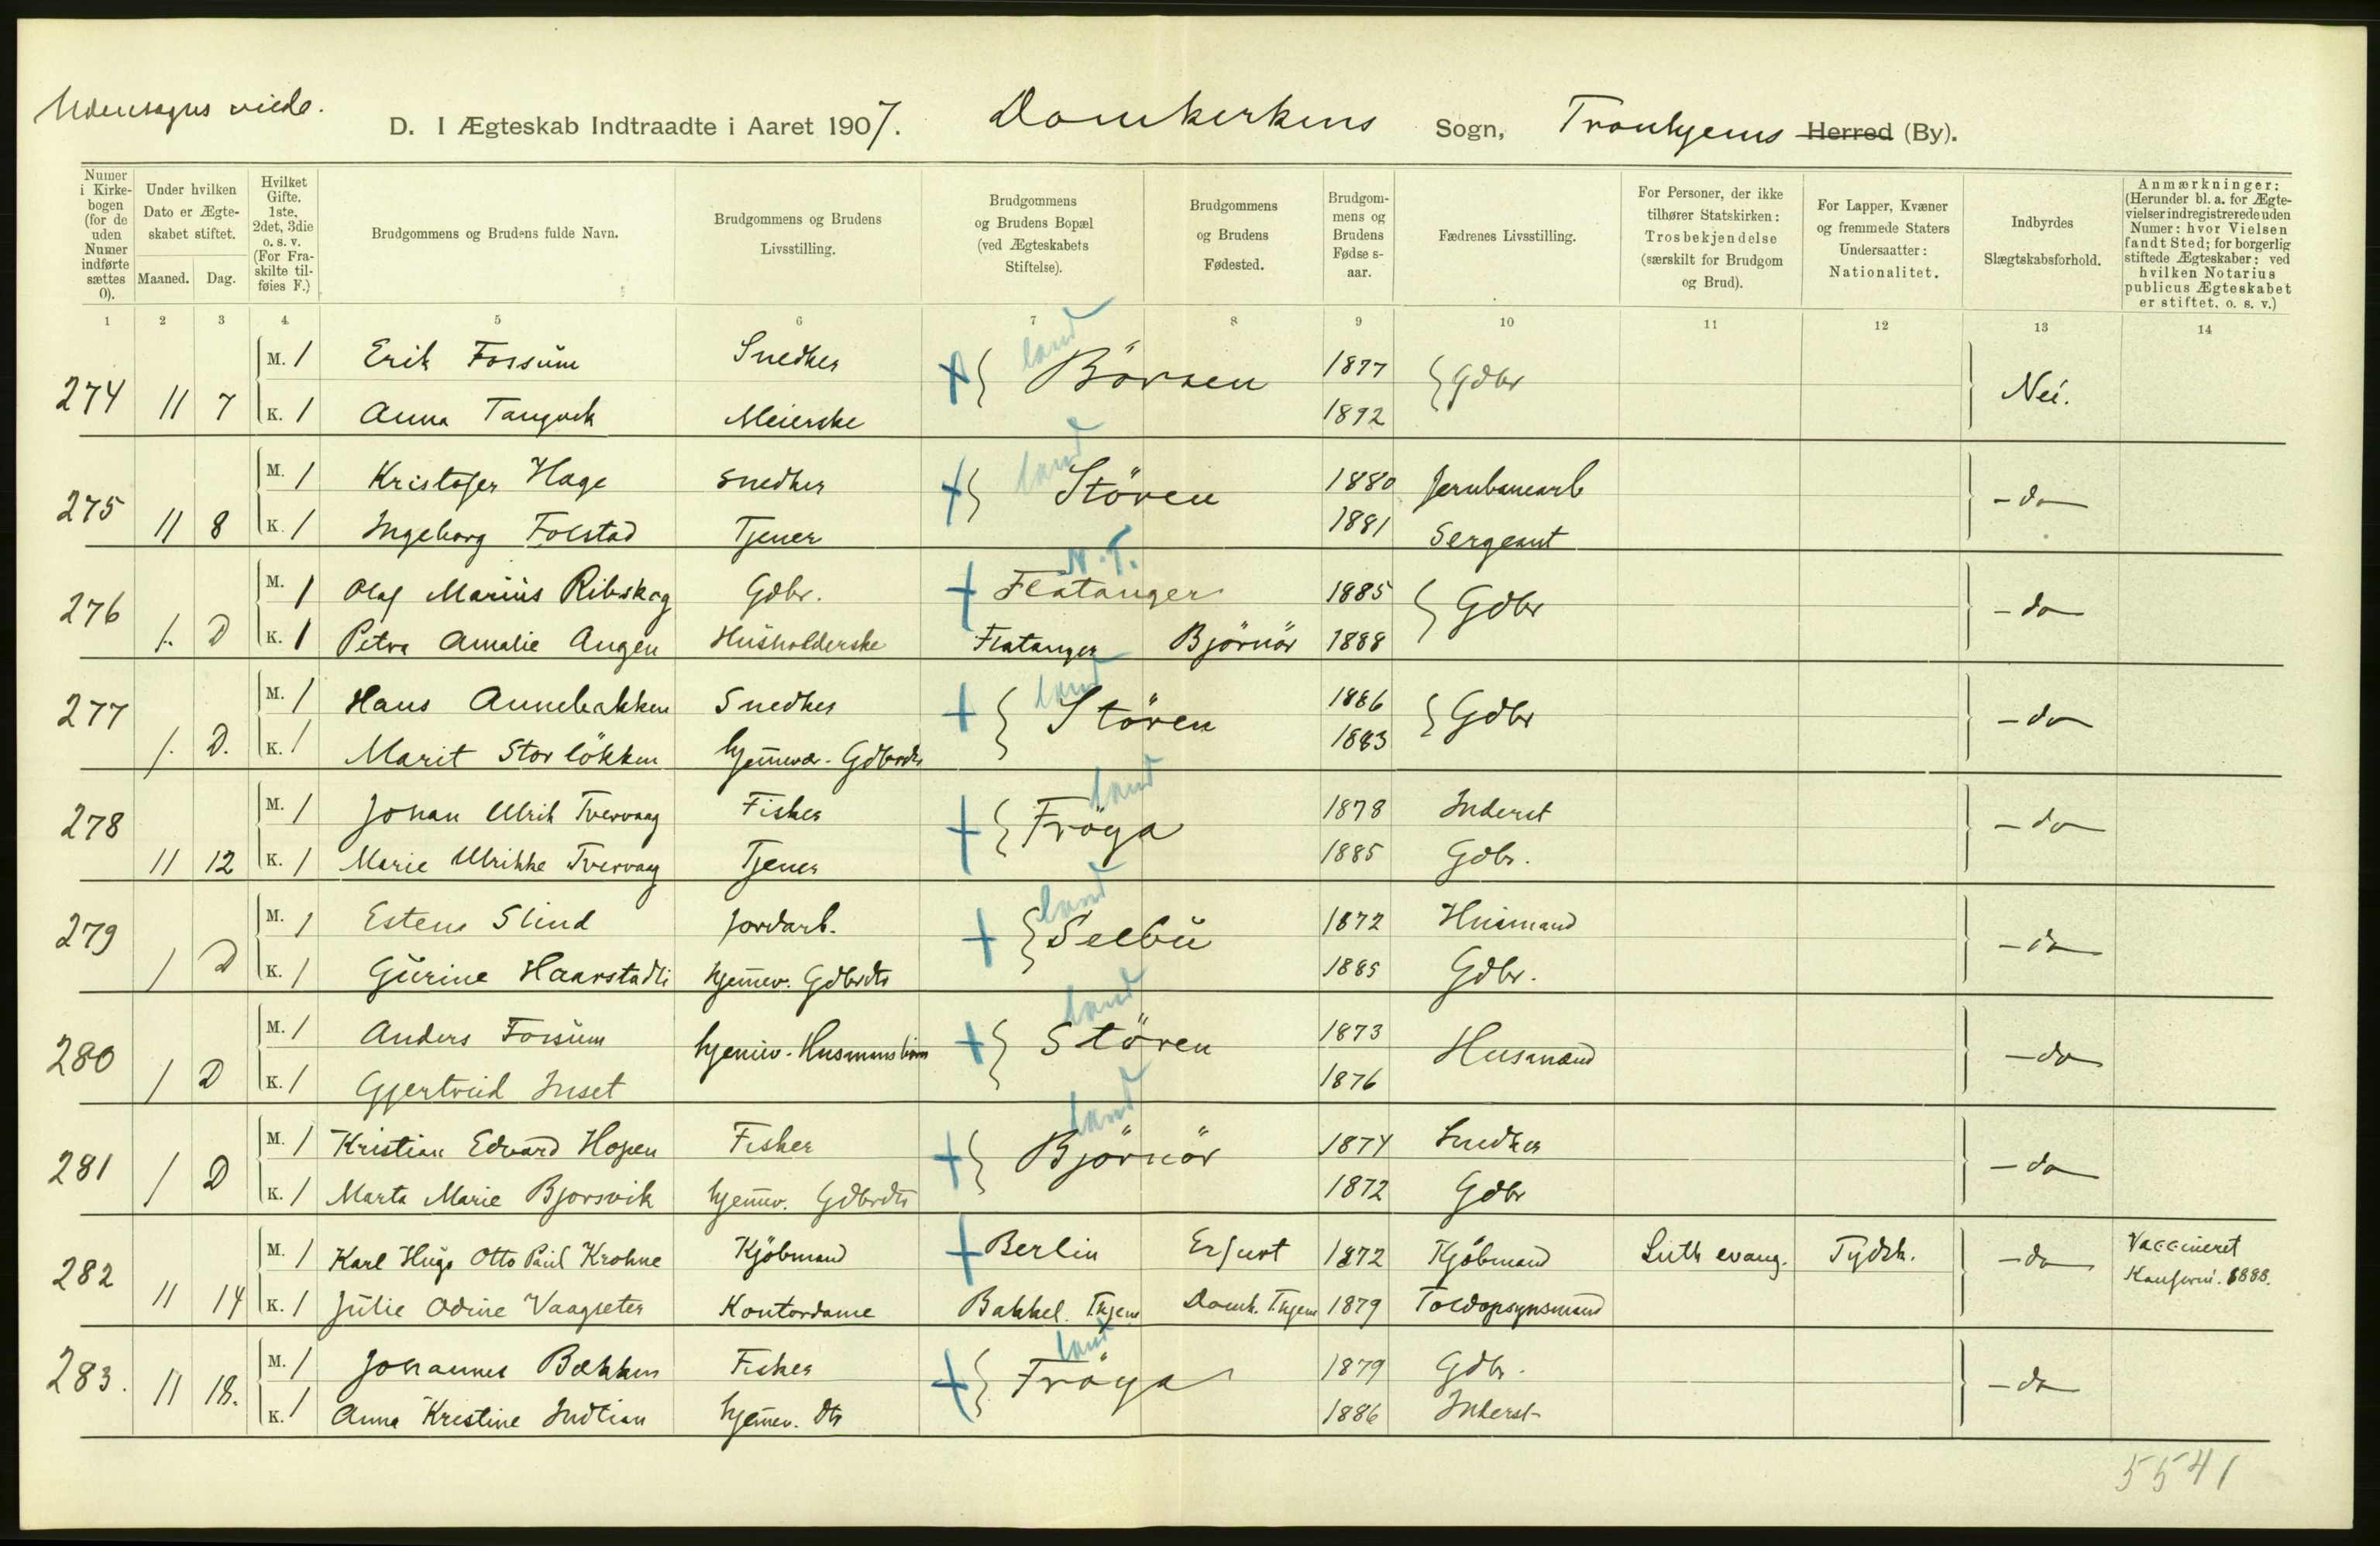 Udensogns viede.
D. I Ægteskab Indtraadte i Aaret 1907. Domkirkens Sogn, Trondhjems Herred (By).
Numer i Kirke-bogen (for de uden Numer indførte sættes 0).
Under hvilken Dato er Ægte-skabet stiftet.
Maaned. Dag.
Hvilket Gifte. 1ste, 2det, 3die o. s. v. (For Fra-skilte til-føies F.)
Brudgommens og Brudens fulde Navn.
Brudgommens og Brudens Livsstilling.
Brudgommens og Brudens Bopæl (ved Ægteskabets Stiftelse).
Brudgommens og Brudens Fødested.
Brudgom-mens og Brudens Fødse s-aar.
Fædrenes Livsstilling.
For Personer, der ikke tilhører Statskirken: Trosbekjendelse (særskilt for Brudgom og Brud).
For Lapper, Kvæner og fremmede Staters Undersaatter: Nationalitet.
Indbyrdes Slægtskabsforhold.
Anmærkninger: (Herunder bl. a. for Ægte-vielser indregistrerede uden Numer: hvor Vielsen fandt Sted; for borgerlig stiftede Ægteskaber: ved hvilken Notarius publicus Ægteskabet er stiftet. o. s. v.)
1 2 3 4 5 6 7 8 9 10 11 12 13 14
land
M. 1 Erik Fossum Snedker 1877
274 11 7 + Börsen Gdbr Nei.
K. 1 Anna Tangvik Meierske 1892
land
M. 1 Kristofer Hage Snedker 1880 Jernbanearb
275 11 8 + Stören – do
K. 1 Ingeborg Folstad Tjener 1881 Sergeant
N. T.
M. 1 Olaf Marius Ribskog Gdbr. + Flatanger 1885
276 /. D Gdbr – do
K. 1 Petra Amalie Angen Husholderske Flatanger Björnör 1888
land
M. 1 Hans Annebakken Snedker 1886
277 /. D. + Stören Gdbr – do
K. 1 Marit Storlökken hjemmev. Gdbrdtr 1883
land
M. 1 Johan Ulrik Tvervaag Fisker 1878 Inderst
278 11 12 + Fröya – do
K. 1 Marie Ulrikke Tvervaag Tjener 1885 Gdbr.
land
M. 1 Esten Slind Jordarb. 1872 Husmand
279 / D + Selbu – do
K. 1 Gurine Haarstadli hjemmev. Gdbrdtr 1885 Gdbr.
land
M. 1 Anders Forsum 1873
280 / D hjemmev. Husmansbörn + Stören Husmænd – do
K. 1 Gjertrud Inset 1876
land
M. 1 Kristian Edvard Hopen Fisker 1874 Snedker
281 / D + Björnör – do
K. 1 Marta Marie Bjorsvik hjemmev. Gdbrdtr 1872 Gdbr
M. 1 Karl Hugo Otto Paul Krohne Kjöbmand + Berlin Erfurt 1872 Kjöbmand Luth evang. Tydsk. – do Vaccineret
282 11 14 Konfirm. 1888.
K. 1 Julie Odine Vaagseter Kontordame Bakkel. Thjem Domk. Thjem 1879 Toldopsynsmand
land
M. 1 Johannes Bakken Fisker 1879 Gdbr.
283. 11 18. + Fröya – do
K. 1 Anna Kristine Indlian hjemmev. dtr 1886 Inderst
5541